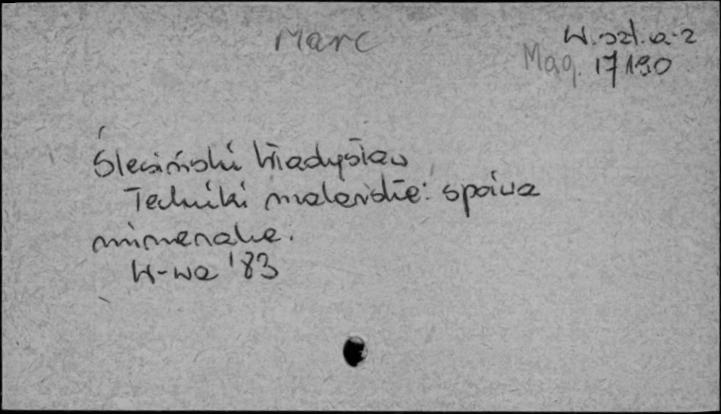 Marc
W. szt. a-z
Mag. 17190
Ślesiński Władysław
Techniki malarskie: spoiwa
mineralne.
W-wa '83